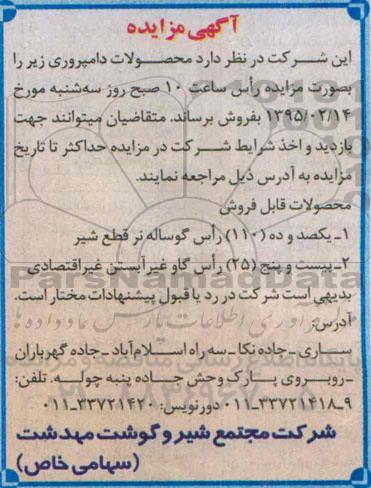 آگهی مزایده
این شرکت در نظر دارد محصولات دامپروری زیر را
بصورت مزایده رأس ساعت ۱۰ صبح روز سه‌شنبه مورخ
۱۳۹۵/۰۲/۱۴ بفروش برساند. متقاضیان میتوانند جهت
بازدید و اخذ شرایط شرکت در مزایده حداکثر تا تاریخ
مزایده به آدرس ذیل مراجعه نمایند.
محصولات قابل فروش
۱ـ یکصد و ده (۱۱۰) رأس گوساله نر قطع شیر
۲ـ بیست و پنج (۲۵) رأس گاو غیرآبستن غیراقتصادی
بدیهی است شرکت در رد یا قبول پیشنهادات مختار است.
آدرس:
ساری ـ جاده نکا ـ سه راه اسلام‌آباد ـ جاده گهرباران
ـ روبروی پارک وحش جاده پنبه چوله. تلفن:
۹ـ۳۳۷۲۱۴۱۸ـ۰۱۱ دورنویس: ۳۳۷۲۱۴۲۰ـ۰۱۱
شرکت مجتمع شیر و گوشت مهدشت
(سهامی خاص)
ParsNamadData